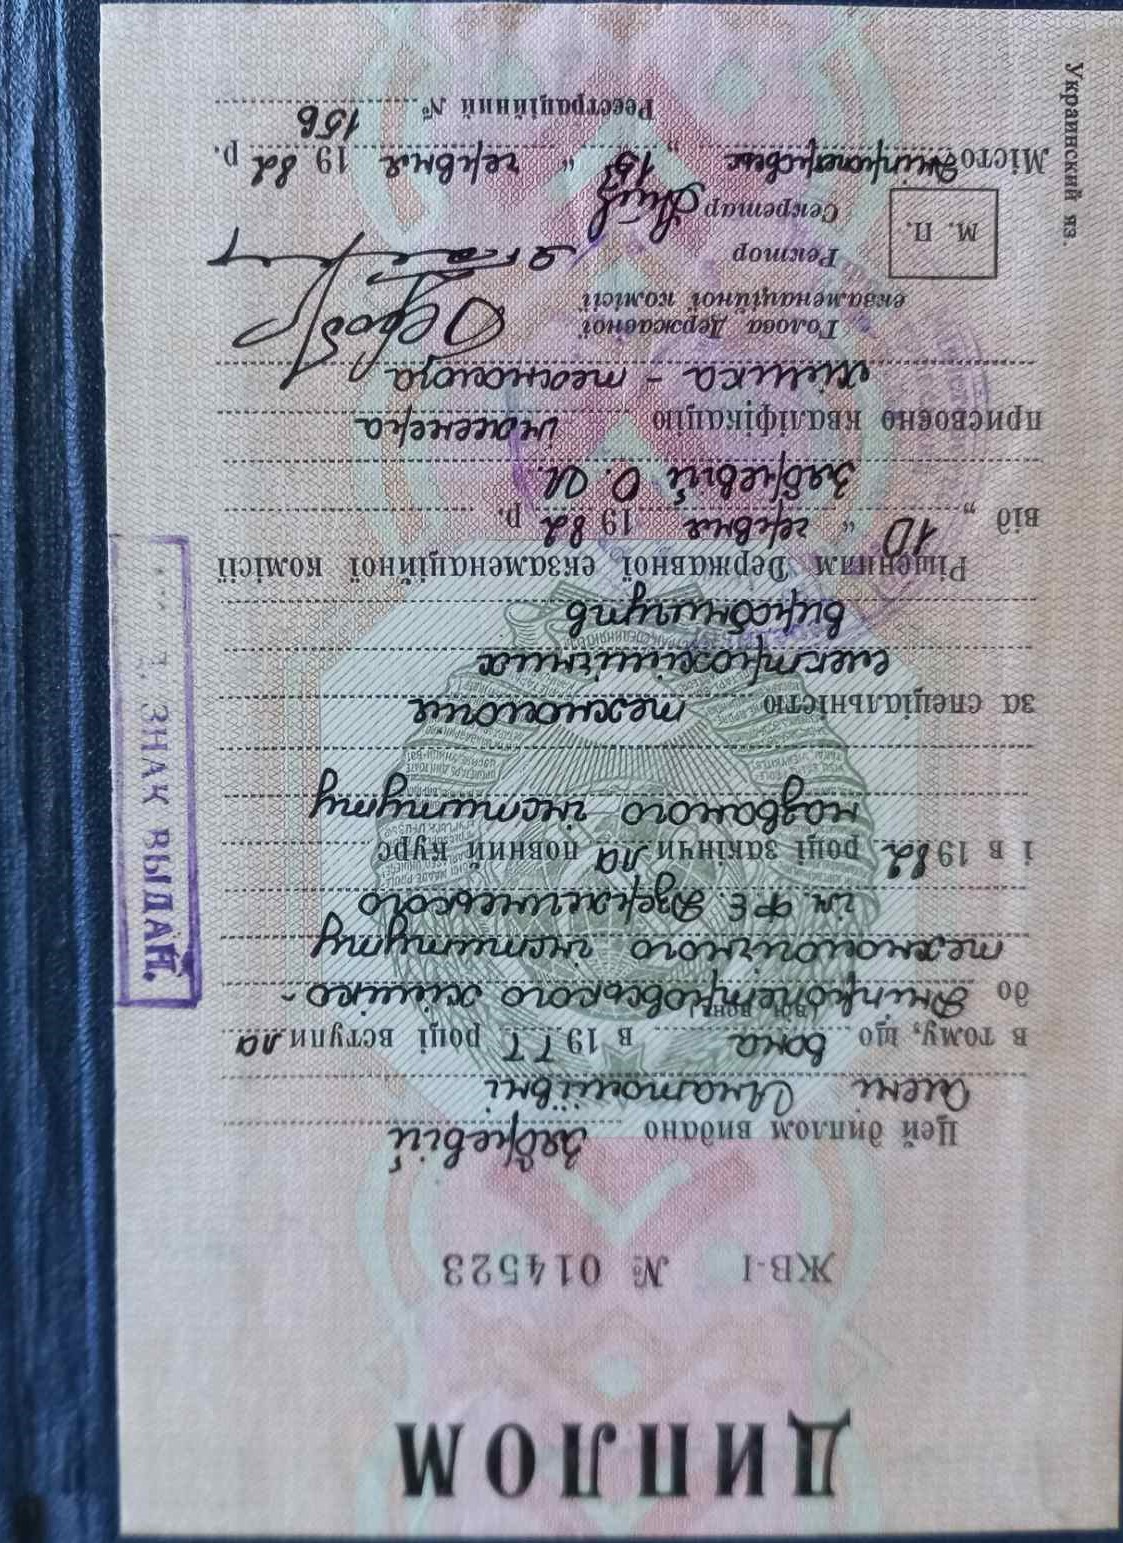 ДИПЛОМ
ЖВ-I № 014523
Цей диплом видано Зябревій
Олені Анатоліївні
в тому, що вона в 1977 році вступила
(він, вона)
до Дніпропетровського хіміко-
технологічного інституту
ім. Ф.Е. Дзержинського
і в 1982 році закінчила повний курс
названого інституту
за спеціальністю технологія
електрохімічних
виробництв
Рішенням Державної екзаменаційної комісії
від „10“ червня 1982 р.
Зябревій О. А.
присвоєно кваліфікацію інженера
хіміка - технолога
Голова Державної
екзаменаційної комісії
Ректор
Секретар
М. П.
Місто Дніпропетровськ „15“ червня 1982 р.
Реєстраційний № 156
Украинский яз.
ЗНАК ВЫДАН.